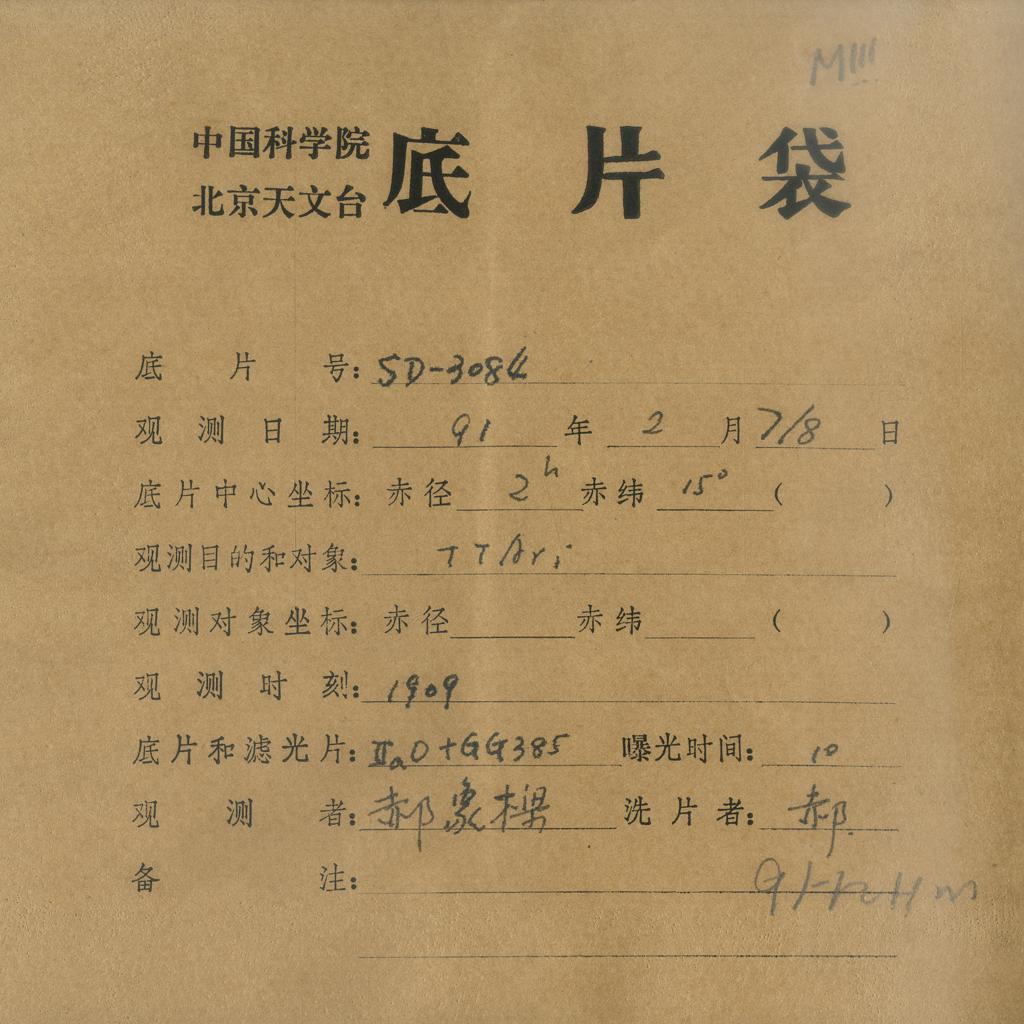 MIII
中国科学院
北京天文台
底片袋
底片号：SD-3084
观测日期：91年2月7/8日
底片中心坐标：赤径2h赤纬15°（ ）
观测目的和对象：TTAri
观测对象坐标：赤径 赤纬 （ ）
观测时刻：1909
底片和滤光片：IIaO+GG385 曝光时间：10
观测者：郝象樑 洗片者：郝
备注：